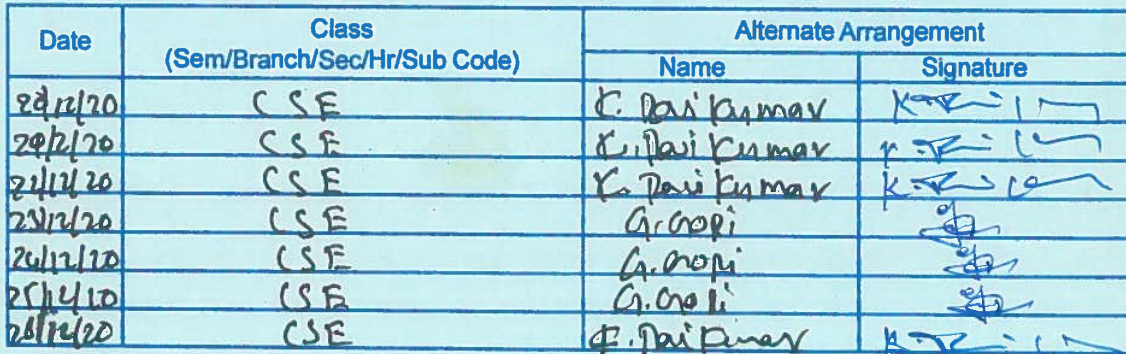 Date Class (Sem/Branch/Sec/Hr/Sub Code) Alternate Arrangement
Name Signature
CSE K. Ravi Kumar
CSE K. Ravi Kumar
CSE K. Ravi Kumar
23/12/20 CSE G. Gopi
24/12/20 CSE G. Gopi
25/12/20 CSE G. Gopi
26/12/20 CSE K. Ravi Kumar